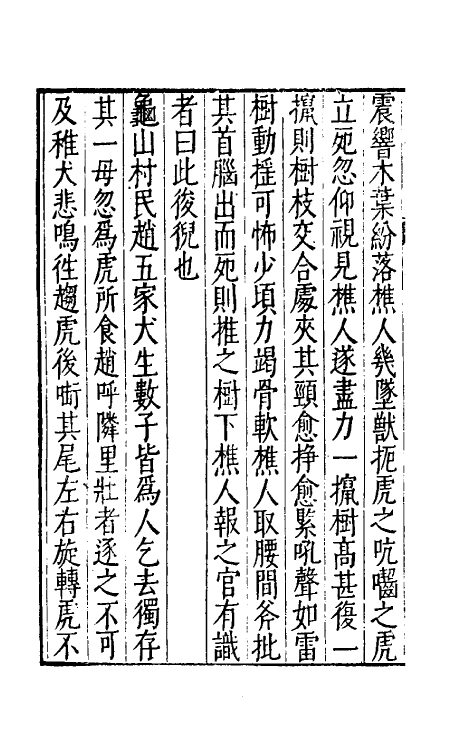 震響木葉紛落樵人幾墜獸扼虎之吭嚙之虎
立死忽仰視見樵人遂盡力一攛樹高甚復一
攛則樹枝交合處夾其頸愈挣愈緊吼聲如雷
樹動摇可怖少頃力竭骨軟樵人取腰間斧批
其首腦出而死則推之樹下樵人報之官有識
者曰此狻猊也
龜山村民趙五家犬生數子皆爲人乞去獨存
其一母忽爲虎所食趙呼隣里壯者逐之不可
及稚犬悲鳴徃趨虎後嚙其尾左右旋轉虎不